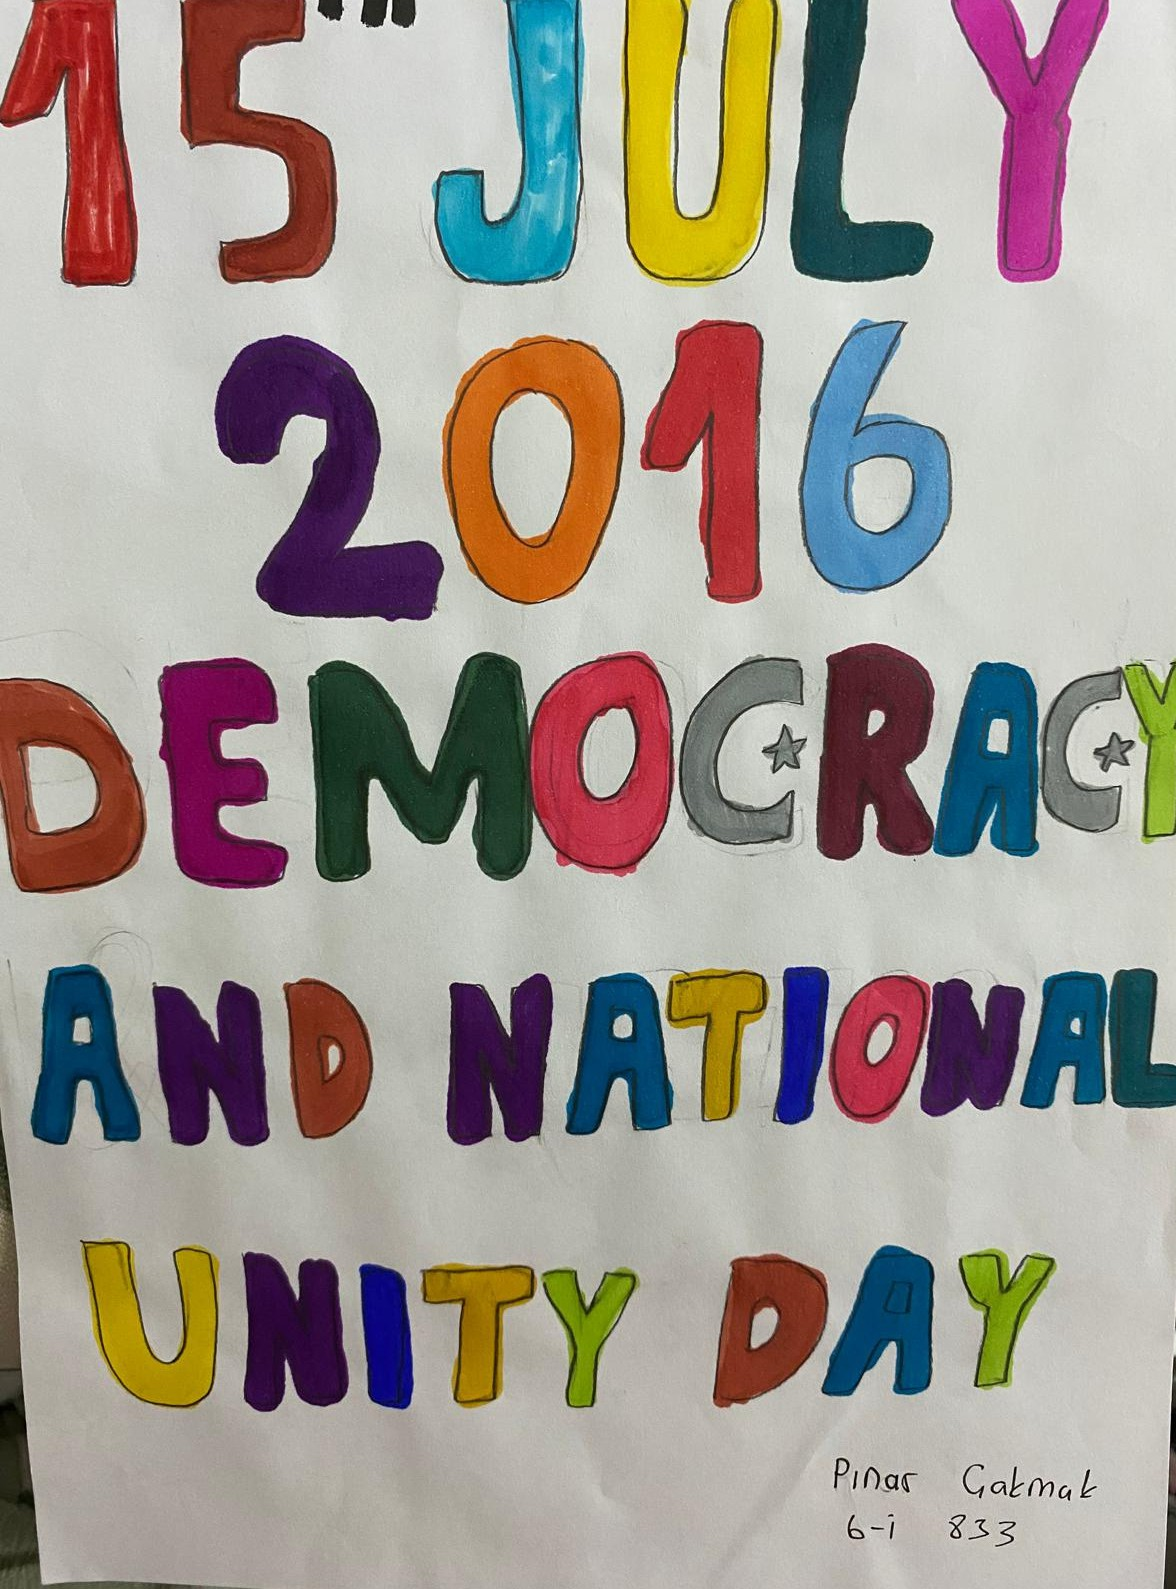 15TH JULY
2016
DEMOCRACY
AND NATIONAL
UNITY DAY
Pınar Çakmak
6-i 833